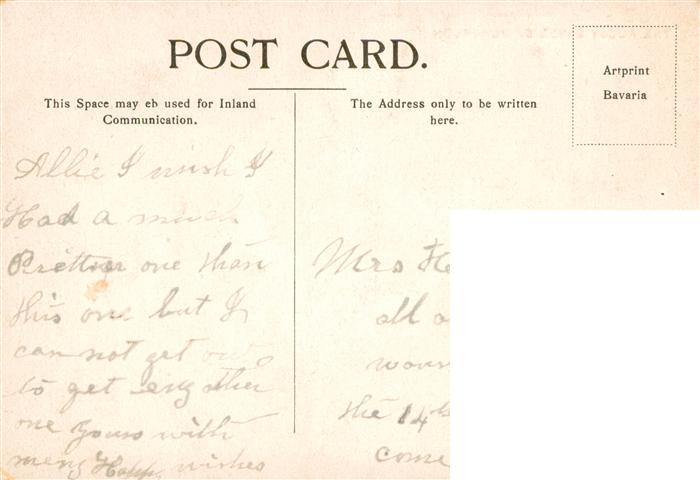 POST CARD.
Artprint
Bavaria
This Space may eb used for Inland
Communication.
The Address only to be written
here.
Allie I wish I
Had a much
Prettier one than
this one but I
can not get out
to get eny other
one yours with
meny Happy wishes
Mrs
all
the 14th
come